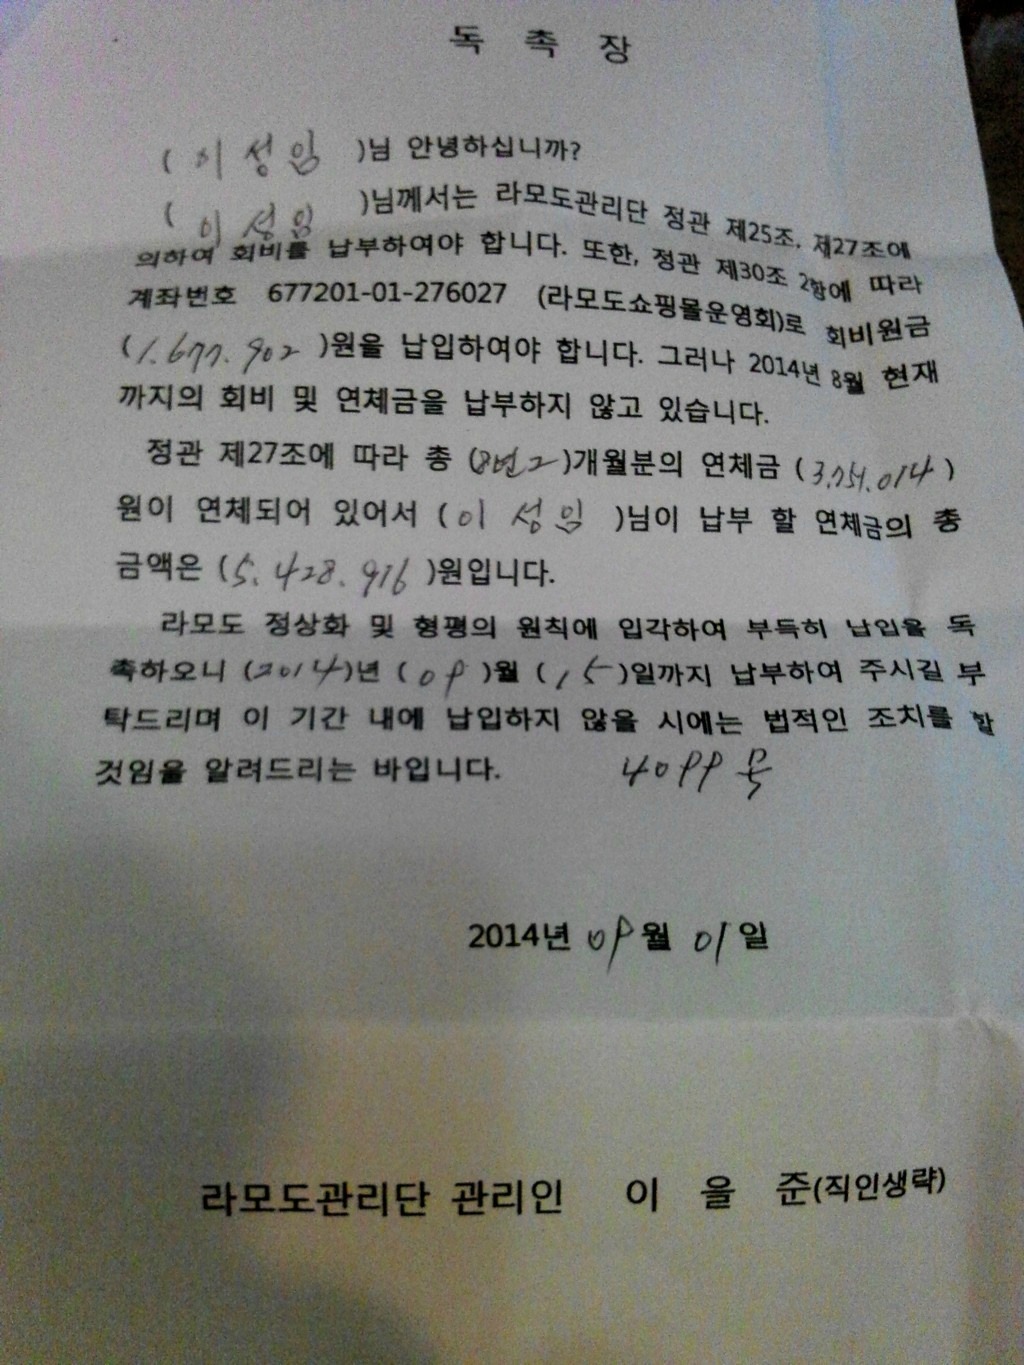 독 촉 장
( 이 성 임 )님 안녕하십니까?
( 이 성 임 )님께서는 라모도관리단 정관 제25조, 제27조에
의하여 회비를 납부하여야 합니다. 또한, 정관 제30조 2항에 따라
계좌번호 677201-01-276027 (라모도쇼핑몰운영회)로 회비원금
(1.677.902 )원을 납입하여야 합니다. 그러나 2014년 8월 현재
까지의 회비 및 연체금을 납부하지 않고 있습니다.
정관 제27조에 따라 총 ( )개월분의 연체금 (3.751.014)
원이 연체되어 있어서 ( 이 성 임 )님이 납부 할 연체금의 총
금액은 (5.428.916 )원입니다.
라모도 정상화 및 형평의 원칙에 입각하여 부득히 납입을 독
촉하오니 (2014)년 ( 09 )월 ( 15 )일까지 납부하여 주시길 부
탁드리며 이 기간 내에 납입하지 않을 시에는 법적인 조치를 할
것임을 알려드리는 바입니다. 4099
2014년 09월 01일
라모도관리단 관리인 이 을 준(직인생략)